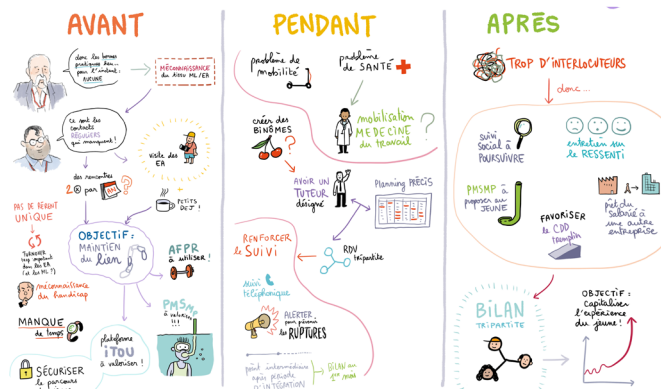 AVANT
donc les bonnes
pratiques heu...
pour l'instant :
AUCUNE
MÉCONNAISSANCE
du tissu ML/EA
Ce sont les
contacts
RÉGULIERS
qui manquent !
visite des
EA
des rencontres
2 x par AN ?
PETITS
DEJ !
PAS DE RÉRENT
UNIQUE
TURNOVER
trop important
dans les EA
(et les ML ?)
OBJECTIF :
MAINTIEN
du lien
AFPR
à utiliser !
méconnaissance
du handicap
PMSMP
à valoriser
!!!
MANQUE
de temps
plateforme
iTOU
à valoriser !
SÉCURISER
le parcours
PENDANT
problème de
mobilité
problème
de SANTÉ
créer des
BINÔMES
?
mobilisation
MEDECINE
du travail
?
AVOIR UN
TUTEUR
désigné
Planning PRÉCIS
RENFORCER
le SUIVI
RDV
tripartite
suivi
téléphonique
ALERTER
pour prévenir
les RUPTURES
point intermédiaire
après période
D'INTÉGRATION
BILAN au
1er mois
APRÈS
TROP D'INTERLOCUTEURS
donc...
suivi
social à
POURSUIVRE
entretien sur
le RESSENTI
PMSMP à
proposer au
JEUNE
FAVORISER
le CDD
tremplin
prêt du
salarié à
une autre
entreprise
BiLAN
TRIPARTITE
OBJECTIF :
capitaliser
l'expérience
du jeune !